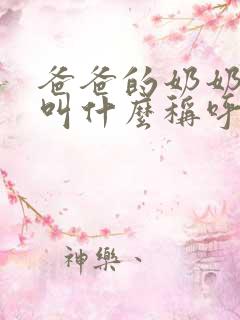 爸爸的奶奶
叫什麼稱呼
神樂、